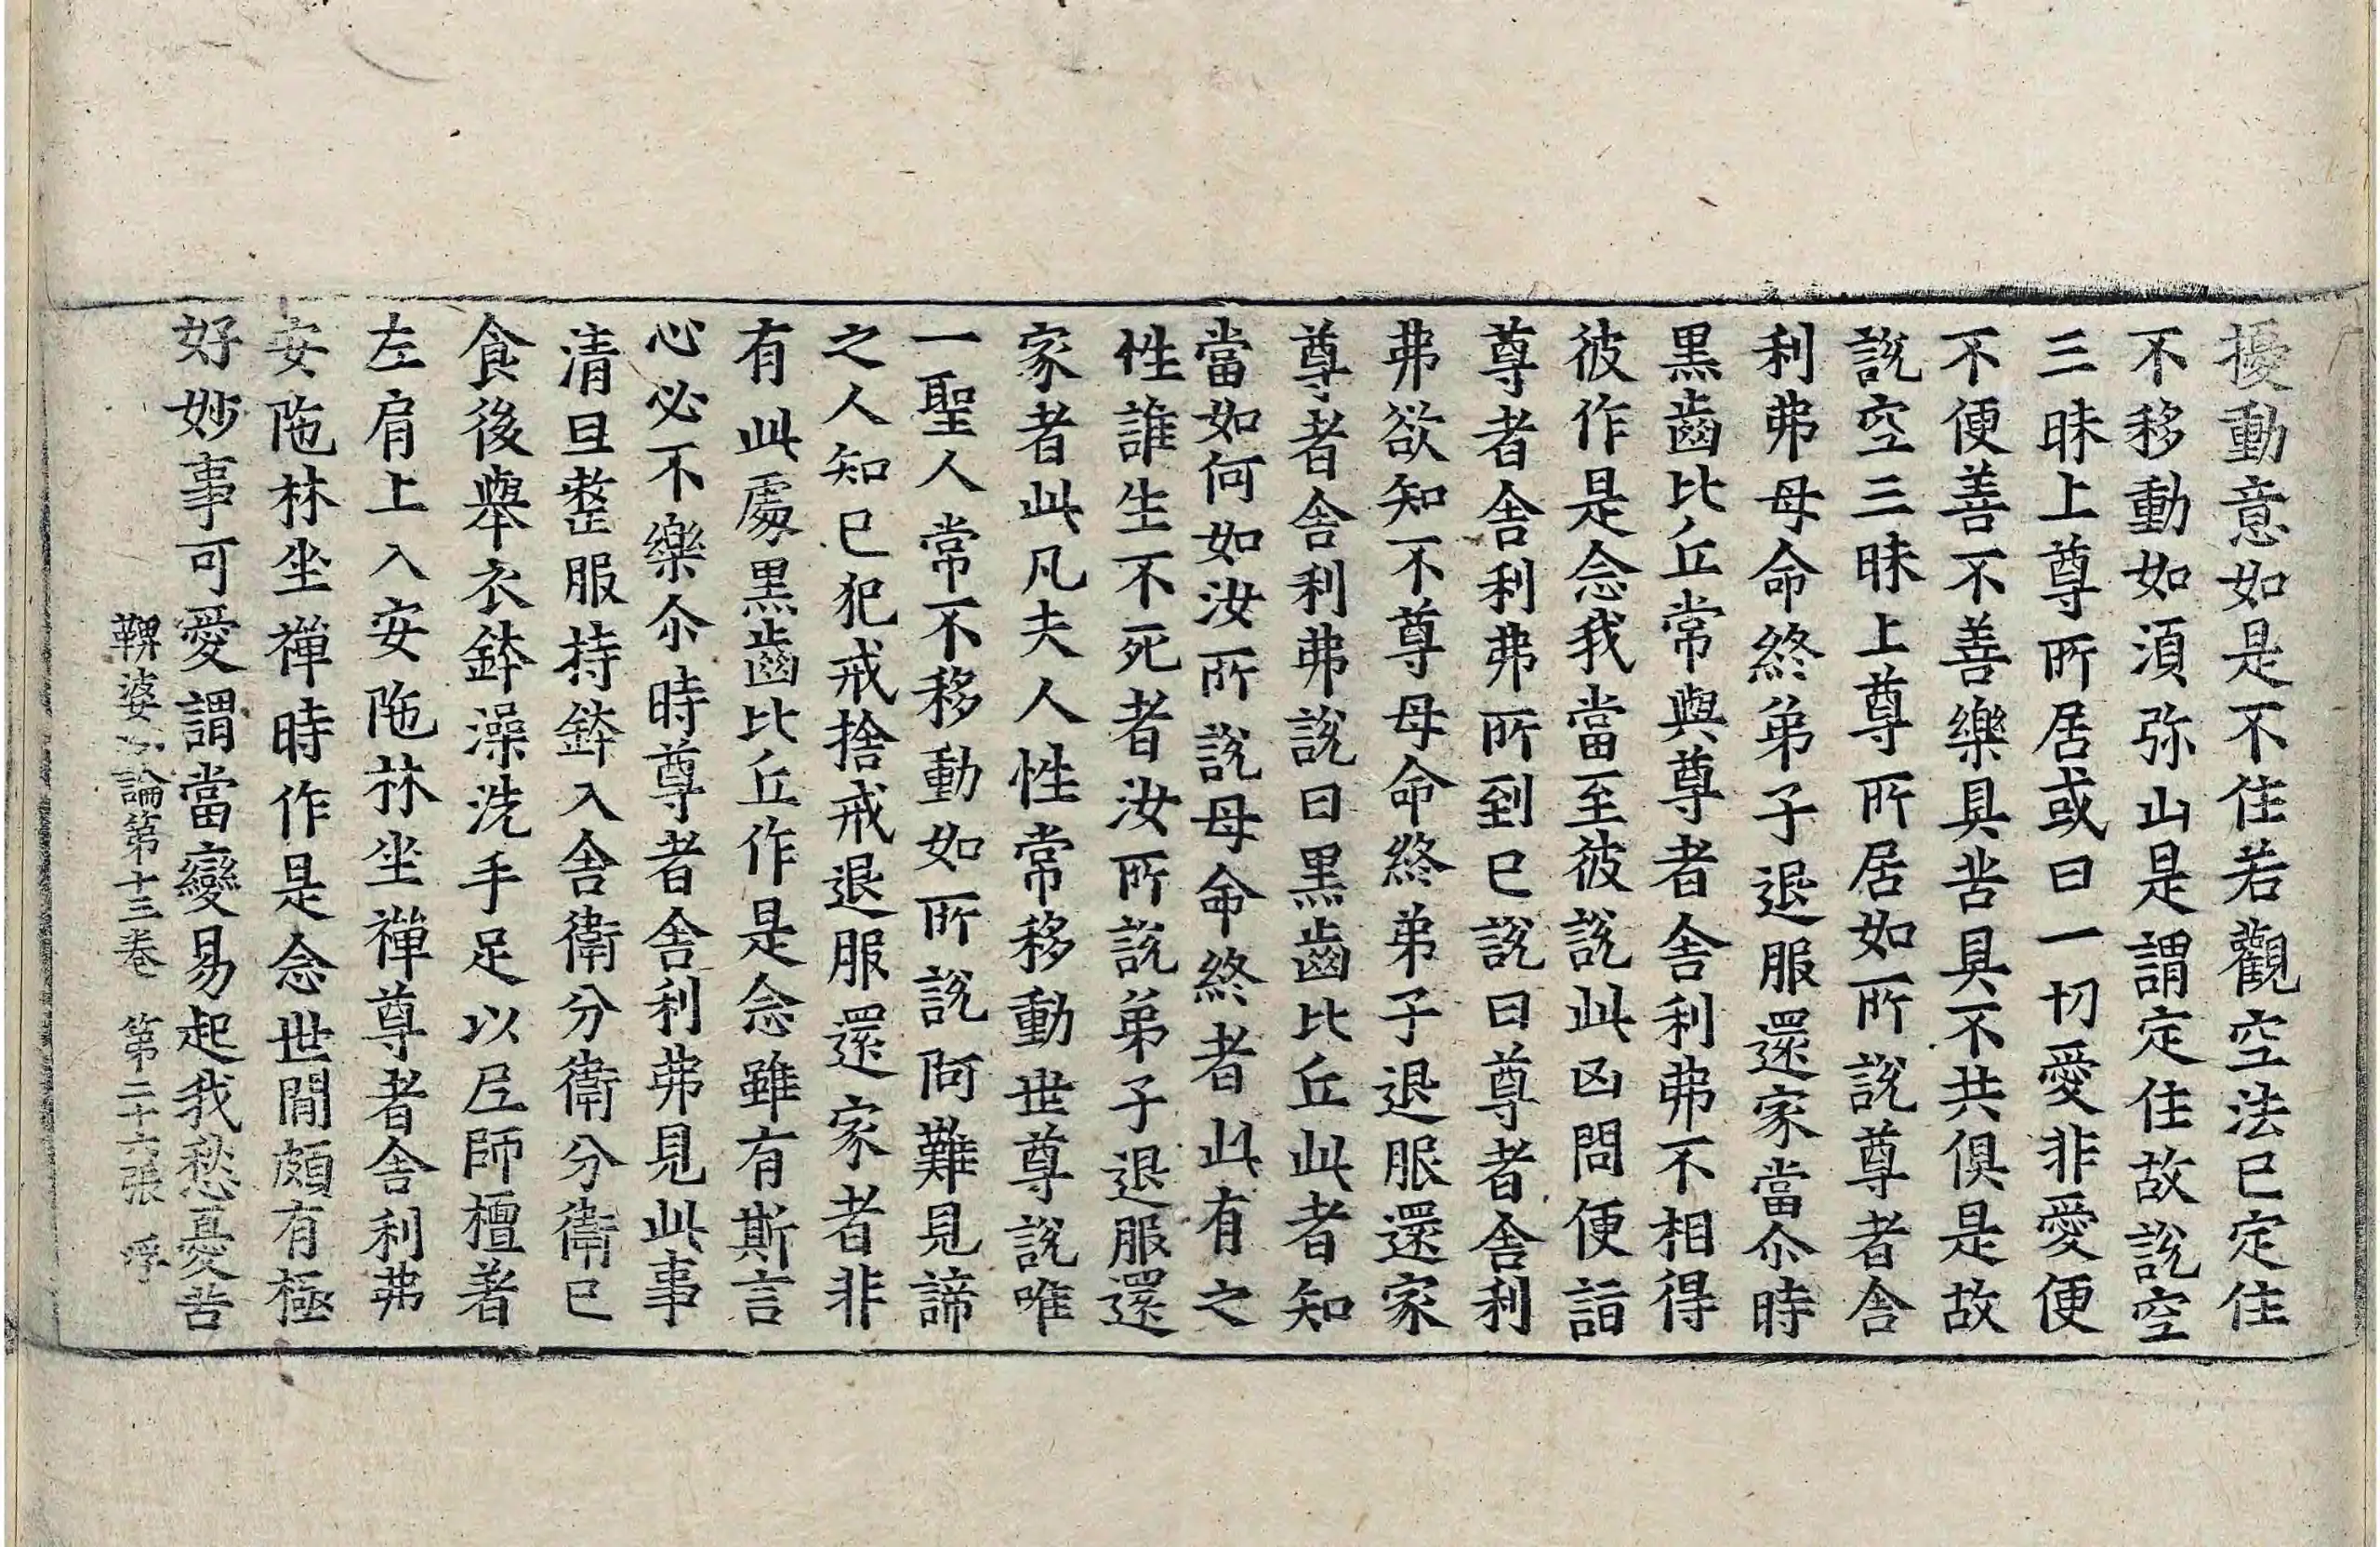 擾動意如是不住若觀空法已定住
不移動如湏弥山是謂定住故說空
三昧上尊所居或曰一切愛非愛便
不便善不善樂具苦具不共俱是故
說空三昧上尊所居如所說尊者舍
利弗母命終弟子退服還家當尒時
黒齒比丘常與尊者舍利弗不相得
彼作是念我當至彼說此凶問便詣
尊者舍利弗所到已說曰尊者舍利
弗欲知不尊母命終弟子退服還家
尊者舍利弗說曰黒齒比丘此者知
當如何如汝所說母命終者此有之
性誰生不死者汝所說弟子退服還
家者此凡夫人性常移動世尊說唯
一聖人常不移動如所說阿難見諦
之人知已犯戒捨戒退服還家者非
有此處黒齒比丘作是念雖有斯言
心必不樂尒時尊者舍利弗見此事
清旦整服持鉢入舍衛分衛分衛已
食後舉衣鉢澡洗手足以尼師檀著
左肩上入安陁林坐禪尊者舍利弗
安陁林坐禪時作是念世閒頗有極
好妙事可愛謂當變易起我愁憂苦
鞞婆沙論第十三卷　第二十六張　俘